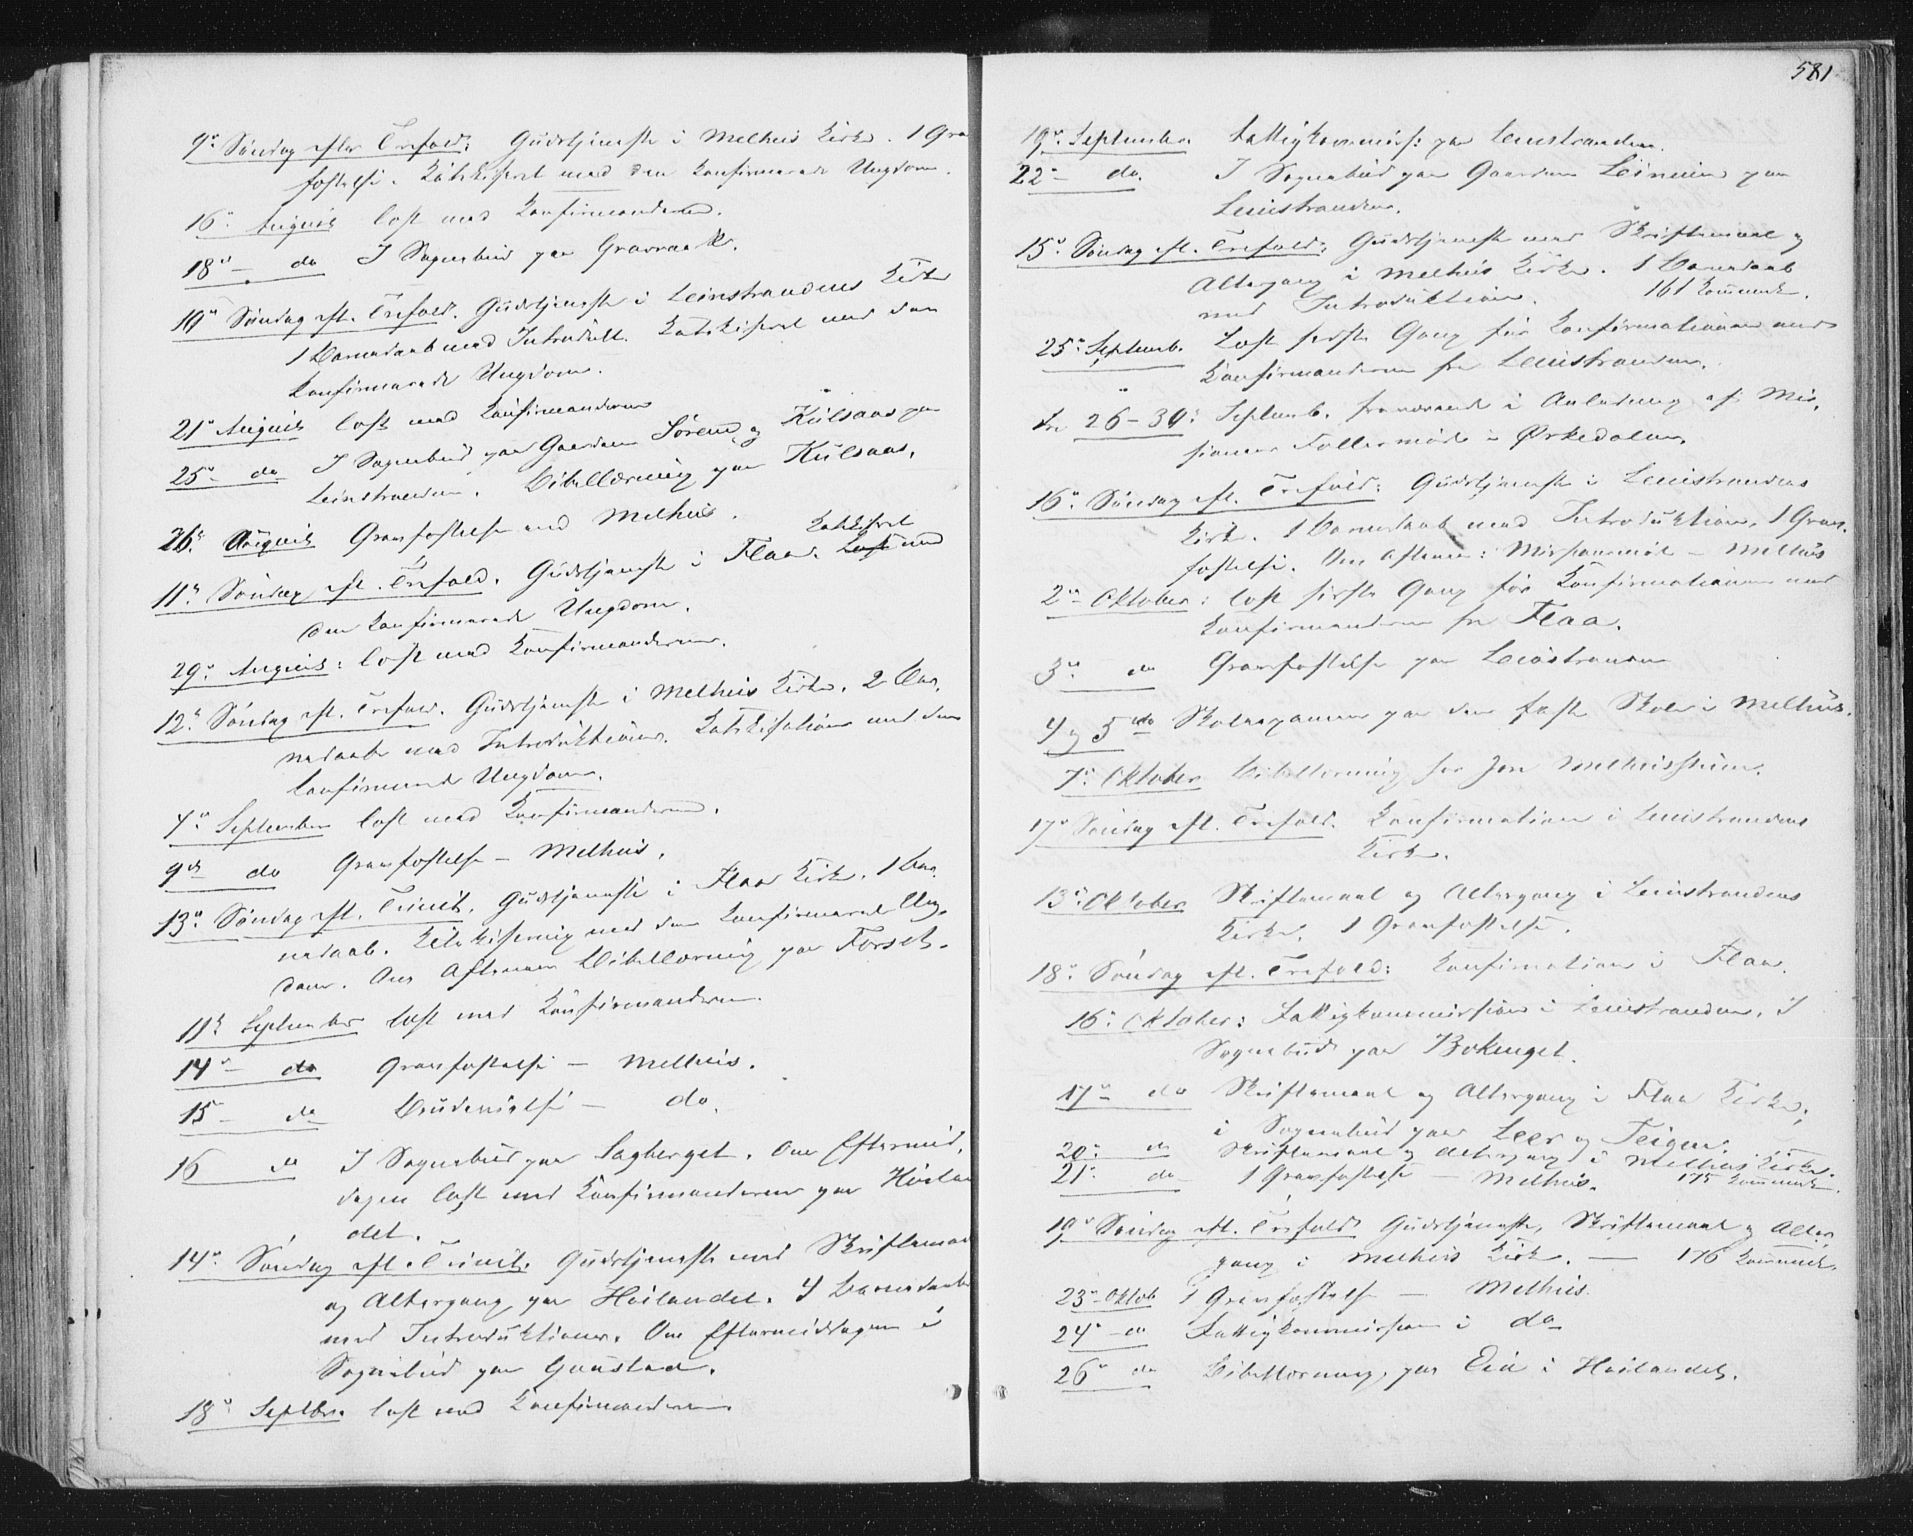 9de Søndag efter Trefold: Gudstjeneste i Melhus Kirke. 1 Grav
fæstelse. Katekiseret med den konfirmerede Ungdom.
16de August læst med Konfirmanderne.
18de – do I Sognebud paa Gravraak.
10de Søndag eft. Trefold. Gudstjeneste i Leinstrandens Kirke
1 Barnedaab med Introdukt. Katekiseret med den
konfirmerede Ungdom.
21de August læst med Konfirmanderne
25de do I Sognebud paa Gaardene Sørem og Kulsaas paa
Leinstranden. Bibellæsning paa Kulsaas.
26de August Gravfæstelse ved Melhus.
Katekiseret
11te Søndag eft. Trefold. Gudstjeneste i Flaa. Læst med
den konfirmerede Ungdom.
29de August: læst med Konfirmanderne.
12te Søndag eft. Trefold. Gudstjeneste i Melhus Kirke. 2 Bar,
nedaab med Introduktioner. Katekisation med den
konfirmerede Ungdom.
4de September læst med Konfirmanderne.
9de do Gravfæstelse – Melhus.
13de Søndag eft. Trinit. Gudstjeneste i Flaa Kirke. 1 Bar
nedaab. Katekisering med den konfirmerede Ung,
dom. Om Aftenen Bibellæsning paa Forset.
11te September læst med Konfirmanderne.
14de – do Gravfæstelse – Melhus.
15 – do Brudevielse – do.
16 do I Sognebud paa Sagberget. Om Eftermid,
dagen læst med Konfirmanderne paa Høilan
det.
14de Søndag eft. Trinit. Gudstjeneste med Skriftemaal
og Altergang paa Høilandet. 4 Barnedaab
med Introduktioner. Om Eftermiddagen i
Sognebud paa Gaustad.
18de Septbr. læst med Konfirmanderne
581
19de September Fattigkommiss: paa Leinstranden.
22de – do. I Sognebud paa Gaarden Leinum paa
Leinstranden.
15de Søndag eft. Trefold: Gudstjeneste med Skriftemaal og
Altergang i Melhus Kirke. 1 Barnedaab
med Introduktion. 161 Kommunik.
25de Septemb. Læst første Gang før Konfirmationen med
Konfirmanderne fra Leinstranden.
Fra 26–30: Septemb. fraværende i Anledning af Mis,
sionens Fællesmøde i Ørkedalen.
16de Søndag eft. Trefold: Gudstjeneste i Leinstrandens
Kirke. 1 Barnedaab med Introduktion. 1 Grav,
fæstelse. Om Aftenen: Missionsmøde – Melhus
2den Oktober: læst første Gang før Konfirmationen med
Konfirmanderne fra Flaa.
3de do Gravfæstelse paa Leinstranden
4 og 5 do Skoleexamen paa den faste Skole i Melhus.
7de Oktober Bibellæsning hos Jon Melhuusheim.
17de Søndag eft. Trefold. Konfirmation i Leinstrandens
Kirke.
13de Oktober Skriftemaal og Altergang i Leinstrandens
Kirke. 1 Gravfæstelse.
18de Søndag eft. Trefold: Konfirmation i Flaa.
16de Oktober: Fattigkommission i Leinstranden. I
Sognebud paa Bokenget.
17de do Skriftemaal og Altergang i Flaa Kirke,
i Sognebud paa Leer og Teigen.
20de do Skriftemaal og Altergang i Melhus Kirke.
21de do 1 Gravfæstelse – Melhus. 175 Kommunik.
19de Søndag eft. Trefold Gudstjeneste, Skriftemaal og Alter
gang i Melhus Kirke. — 176 Kommunik.
23de Oktob 1 Gravfæstelse – Melhus.
24de do Fattigkommission i do
26de do Bibellæsning paa Eid i Høilandet.